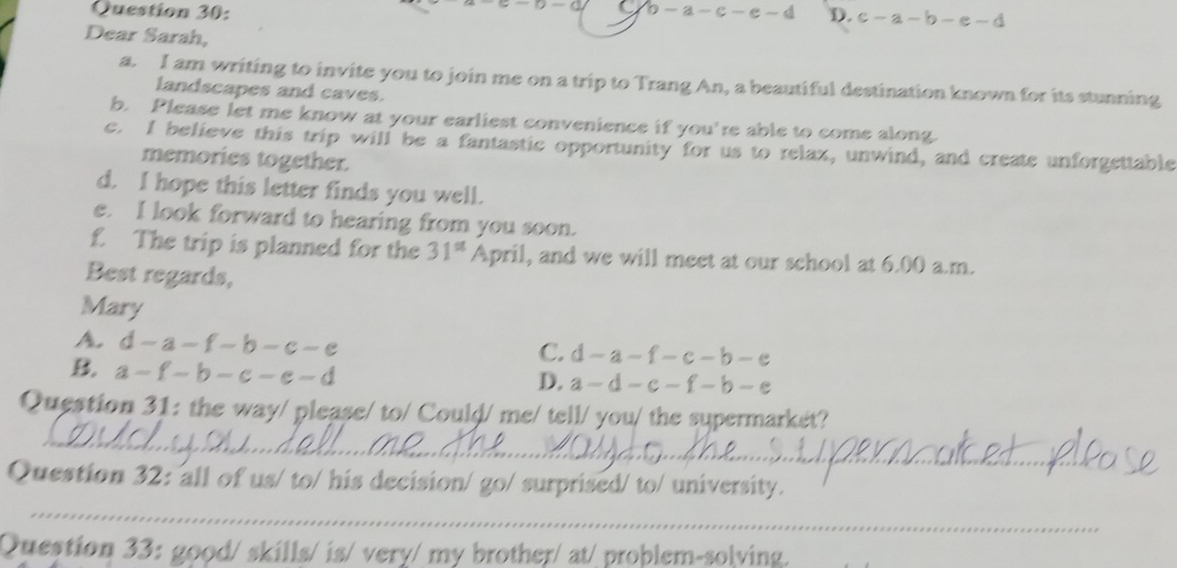 Question 30:
C. b - a - c - e - d D. c - a - b - e - d
Dear Sarah,
a. I am writing to invite you to join me on a trip to Trang An, a beautiful destination known for its stunning
landscapes and caves.
b. Please let me know at your earliest convenience if you're able to come along.
c. I believe this trip will be a fantastic opportunity for us to relax, unwind, and create unforgettable
memories together.
d. I hope this letter finds you well.
e. I look forward to hearing from you soon.
f. The trip is planned for the 31st April, and we will meet at our school at 6.00 a.m.
Best regards,
Mary
A. d - a - f - b - c - e
C. d - a - f - c - b - e
B. a - f - b - c - e - d
D. a - d - c - f - b - e
Question 31: the way/ please/ to/ Could/ me/ tell/ you/ the supermarket?
Could you tell me the way to the supermaket please
Question 32: all of us/ to/ his decision/ go/ surprised/ to/ university.
Question 33: good/ skills/ is/ very/ my brother/ at/ problem-solving.